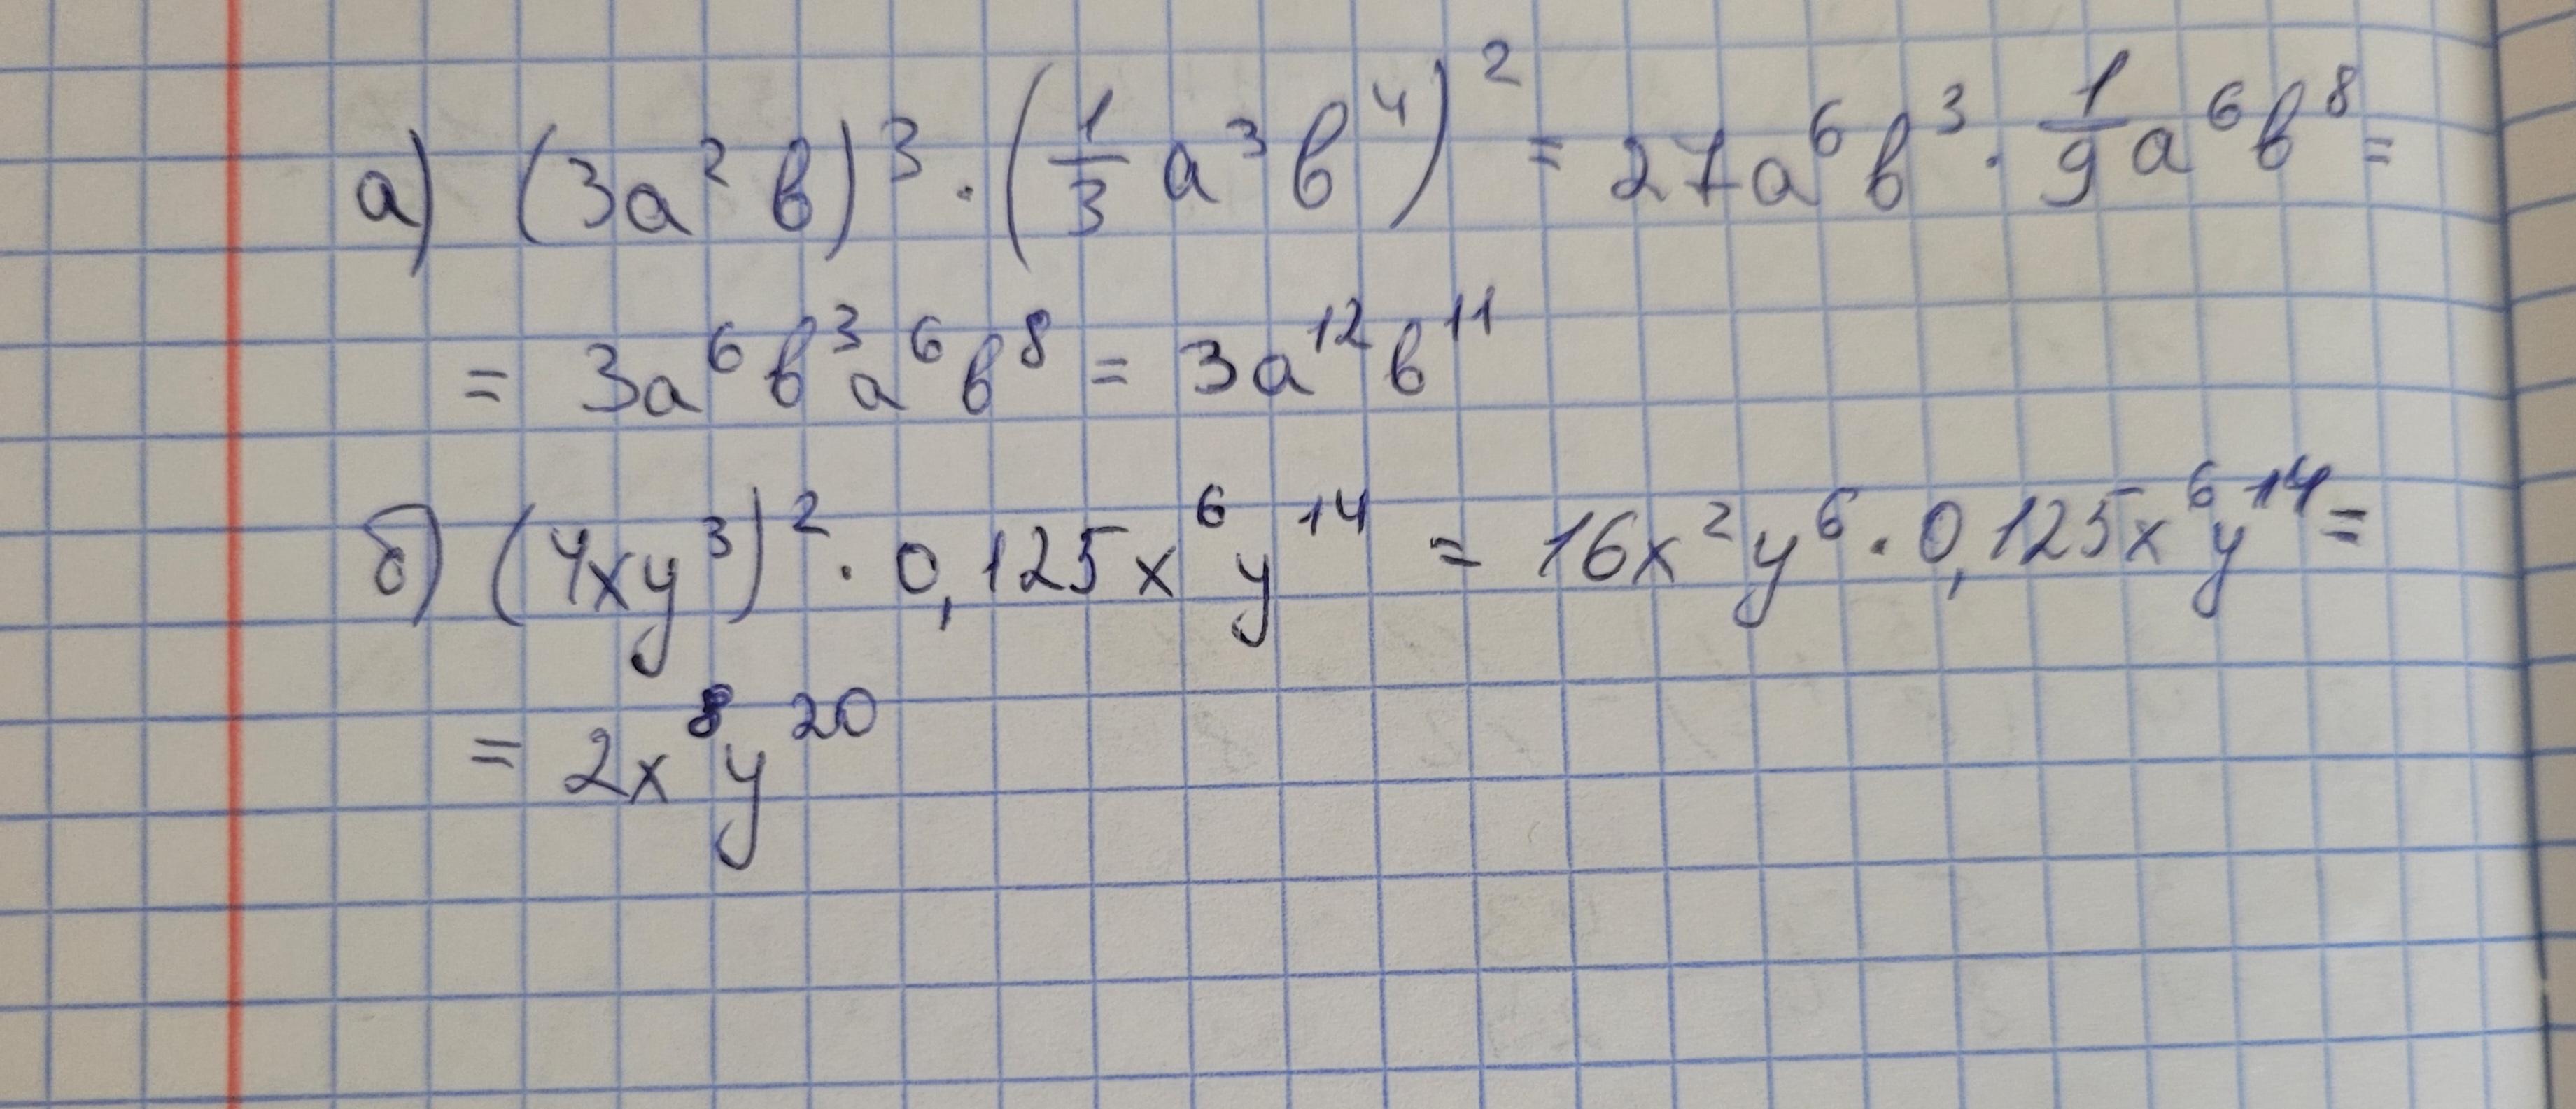 а) (3a²b)³ · (1/3 a³b⁴)² = 27a⁶b³ · 1/9 a⁶b⁸ =
= 3a⁶b³a⁶b⁸ = 3a¹²b¹¹
б) (4xy³)² · 0,125x⁶y¹⁴ = 16x²y⁶ · 0,125x⁶y¹⁴ =
= 2x⁸y²⁰